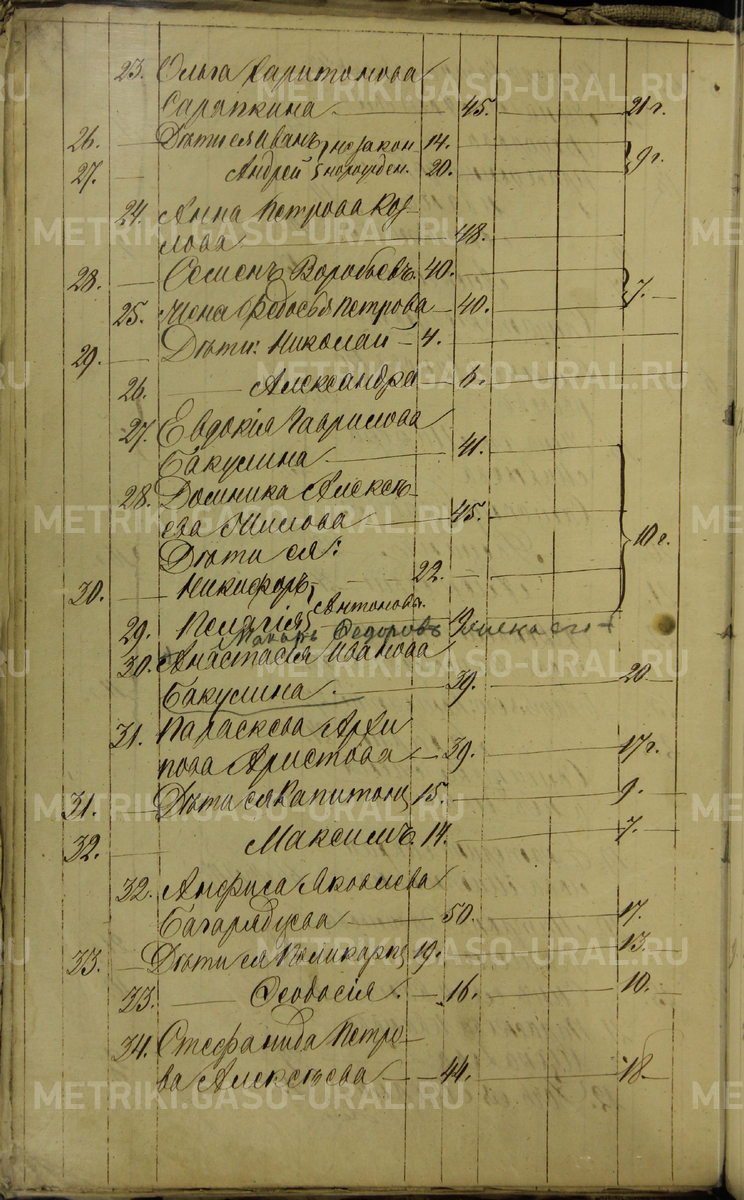 23. Ольга Харитонова
Сарапкина 45. 21 г.
26. Дѣти ея Иванъ незакон 14.
27. Андрей норожден. 20. 9 г.
24. Анна Петрова Коз-
лова 48.
28. Семенъ Воробьевъ. 40.
25. Жена Федосья Петрова 40. 7.
29. Дѣти: Николай 4.
26. Александра 6.
27. Евдокія Гаврилова
Бакулина 41.
28. Домника Алексѣ-
ева 45. 10 г.
Дѣти ея:
30. Никифоръ 22.
Антонова.
29. Пелагія
Макаръ Федоровъ
30. Анастасія Иванова
Бакулина. 39. 20
31. Параскева Архи
пова Аристова 39. 17 г.
31. Дѣти ея Капитонъ 15. 9.
32. Максимъ. 14. 7.
32. Анфиса Яковлева
Багарядцева 50. 17.
33. Дѣти ея Поликарпъ 19. 13.
33. Феодосія. 16. 10.
34. Стефанида Петро-
ва Алексѣева 44. 18
METRIKI.GASO-URAL.RU